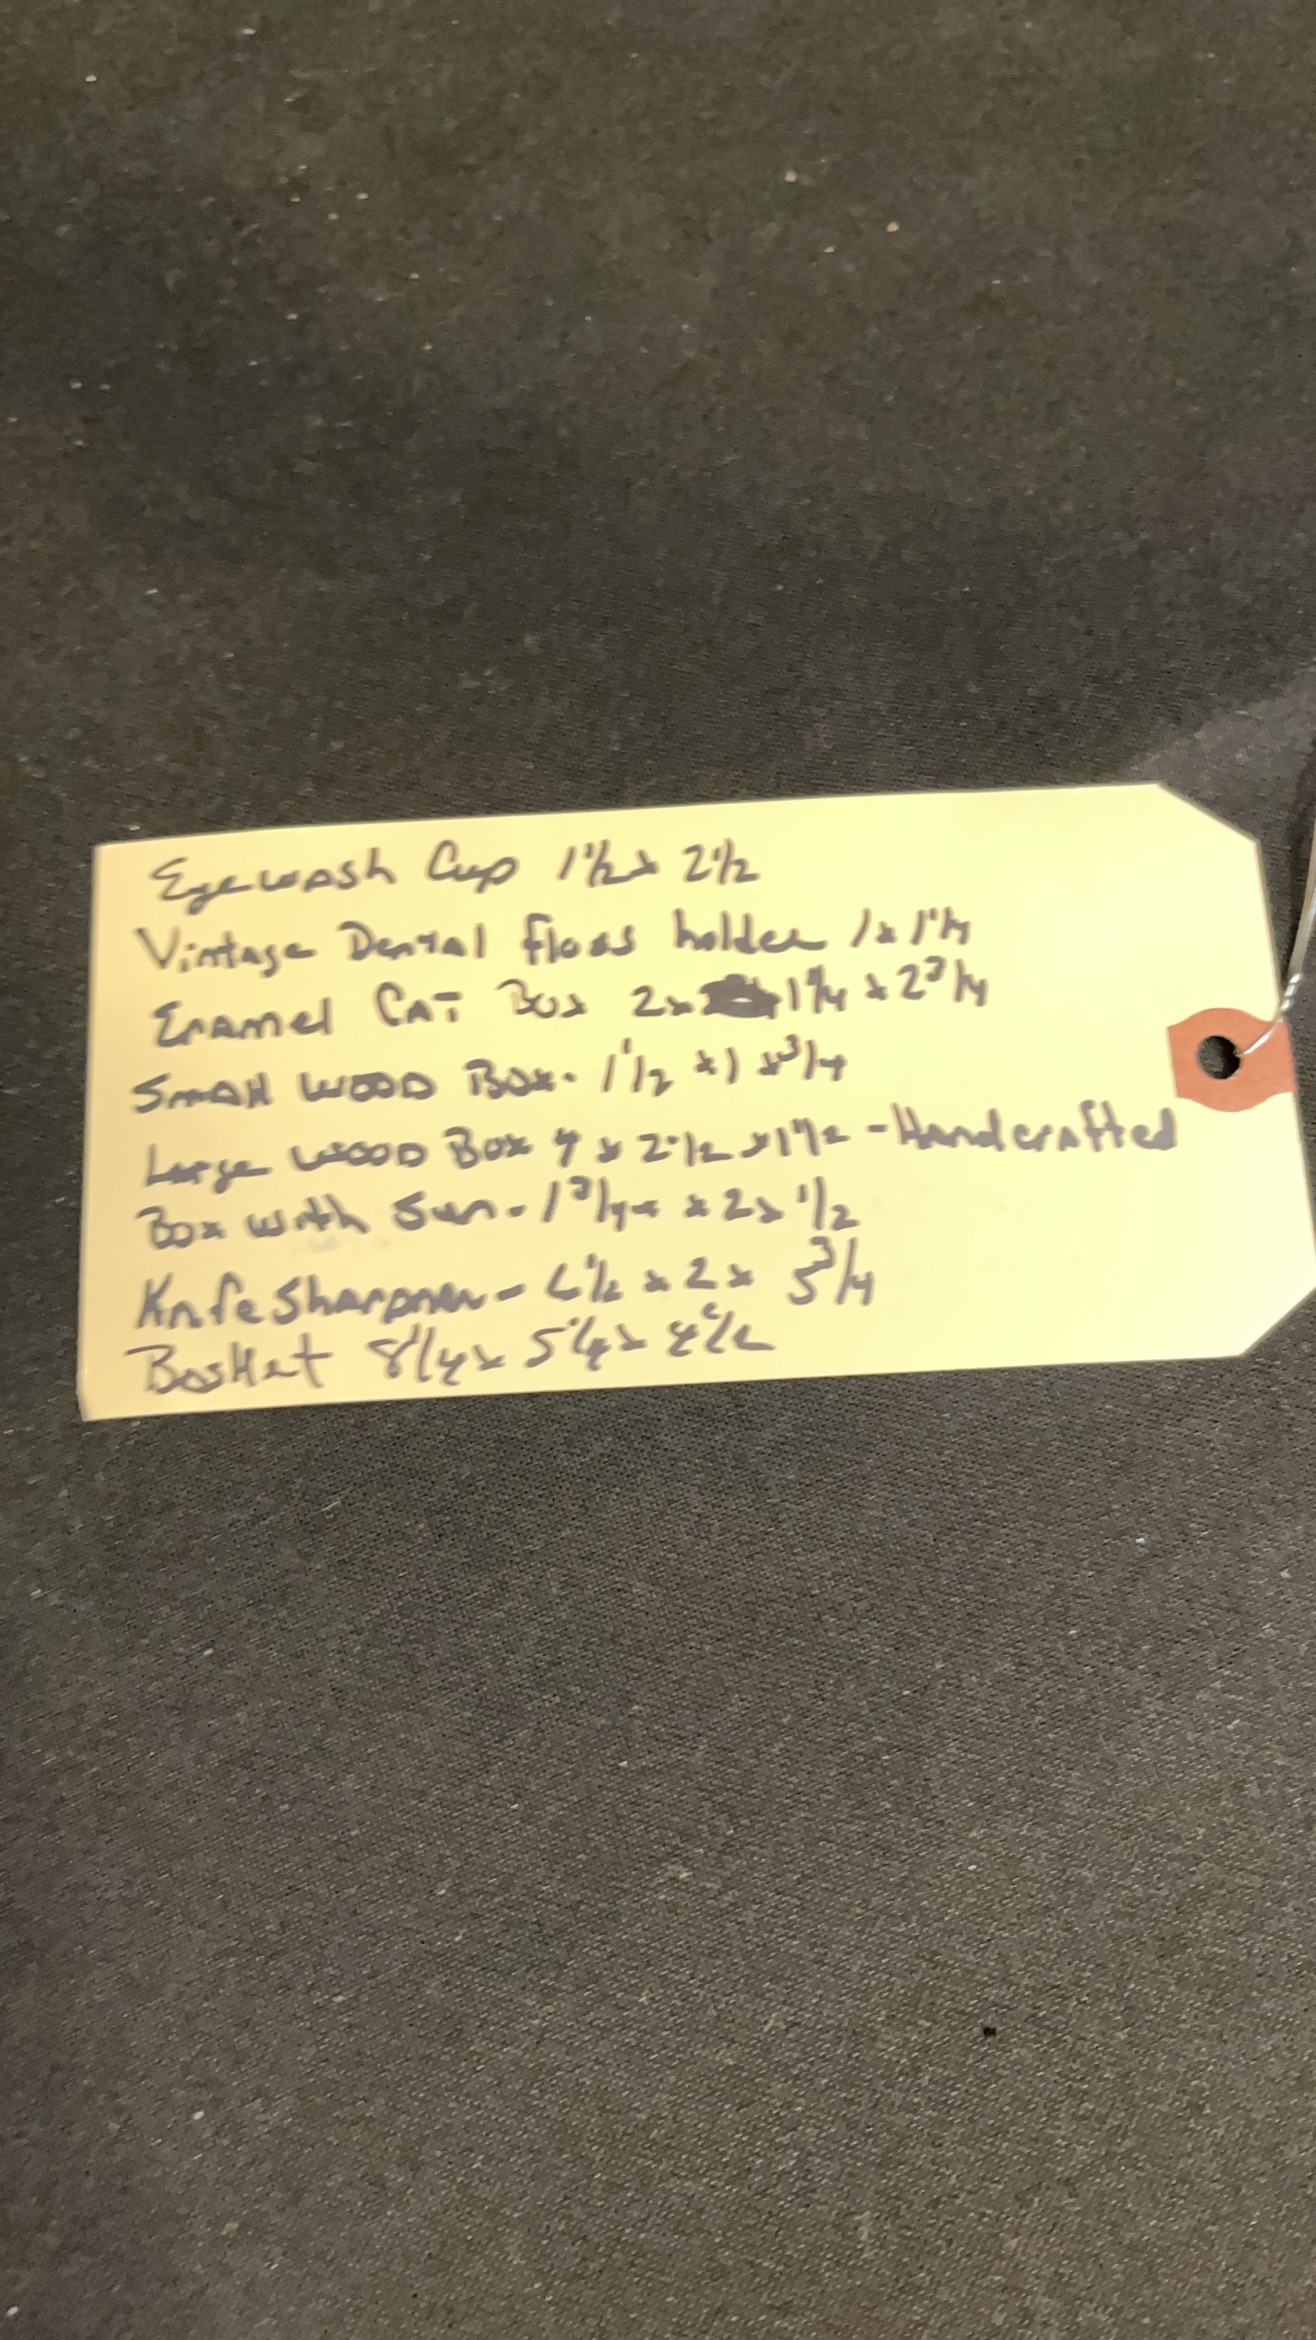 Eyewash Cup 1 1/2 x 2 1/2
Vintage Dental floss holder 1 x 1 1/4
Enamel CAT Box 2 x 1 1/4 x 2 3/4
Small WOOD Box. 1 1/2 x 1 x 3/4
Large WOOD Box 4 x 2 1/2 x 1 1/2 - Handcrafted
Box with Sun. 1 3/4 x 2 x 1/2
Knife Sharpner - 6 1/2 x 2 x 3/4
Basket 8 1/4 x 5 1/4 x